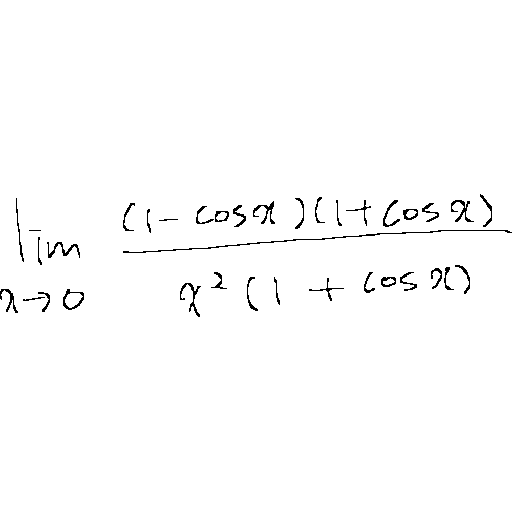 \lim_{x \to 0} \frac{(1 - \cos x)(1 + \cos x)}{x^2 (1 + \cos x)}